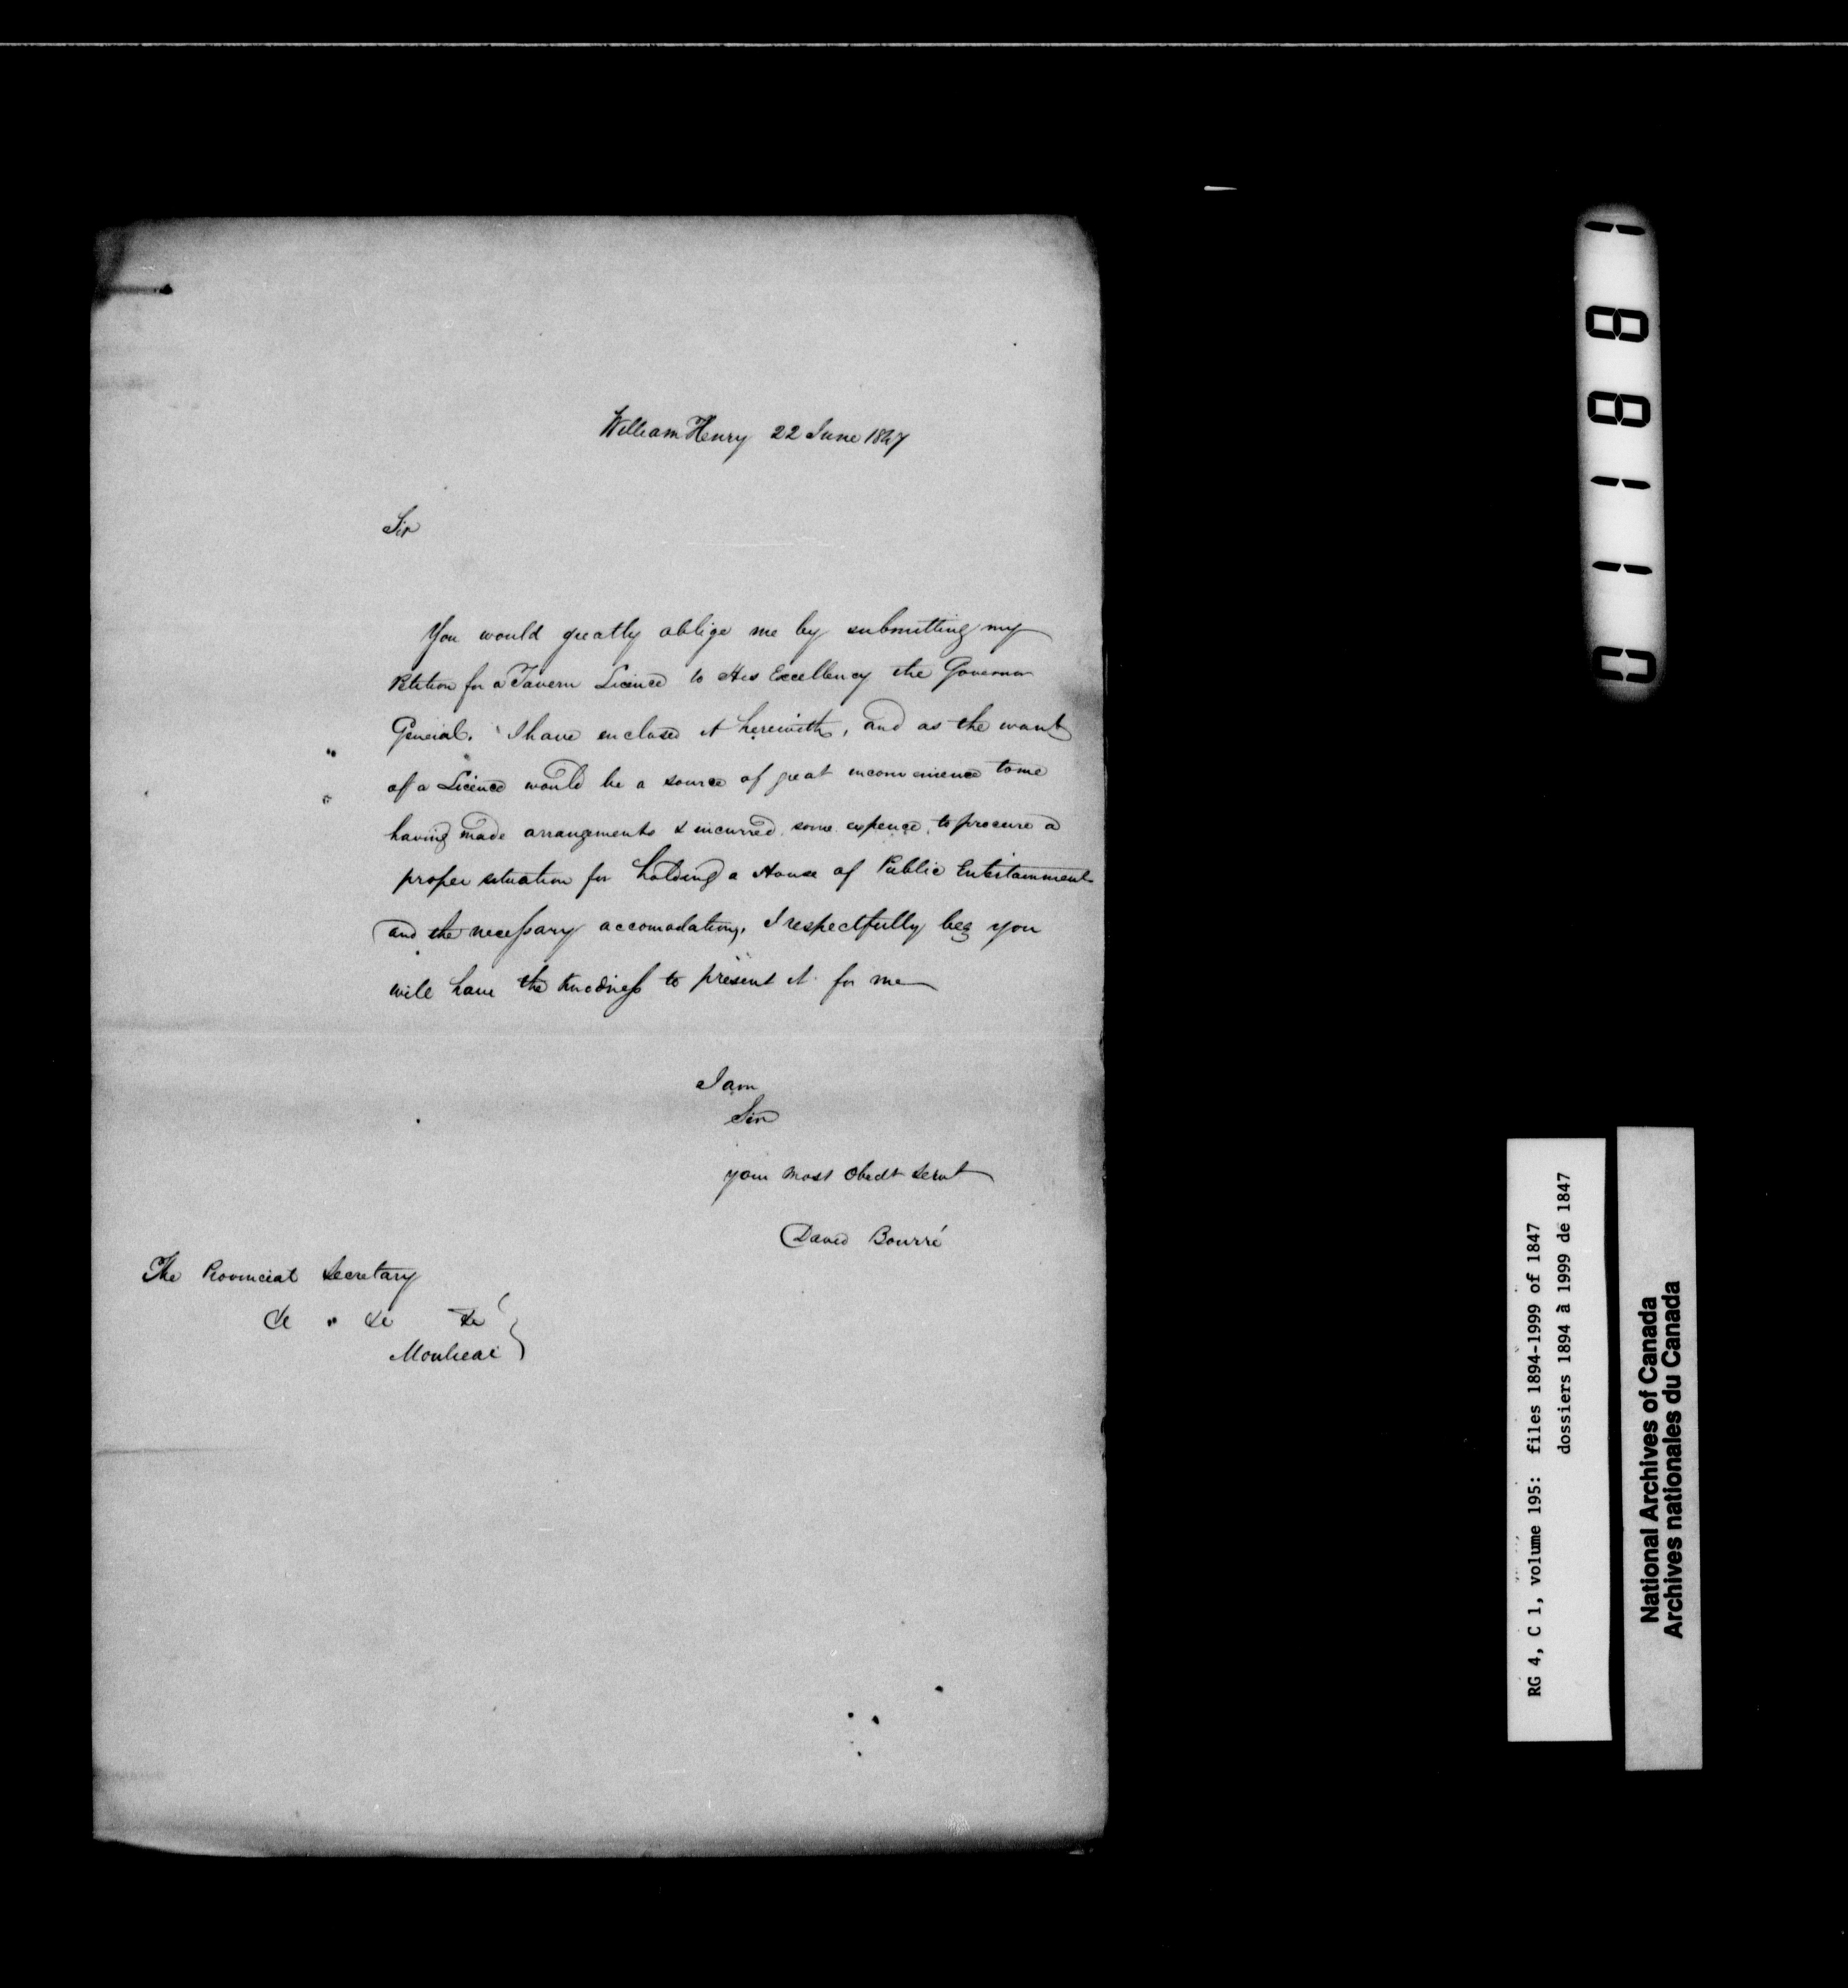 William Henry 22 June 1847
Sir
You would greatly oblige me by submitting my
Petition for a Tavern Licence to His Excellency the Governor
General. I have enclosed it herewith, and as the want
of a Licence would be a source of great inconvenience to me
having made arrangements & incurred some expence to procure a
proper situation for holding a House of Public Entertainment
and the necessary accomodations, I respectfully beg you
will have the kindness to present it for me
I am
Sir
your most Obedt Servt
David Bourré
The Provincial Secretary
&c " &c &c
Montreal
011881
RG 4, C 1, volume 195: files 1894-1999 of 1847
dossiers 1894 à 1999 de 1847
National Archives of Canada
Archives nationales du Canada